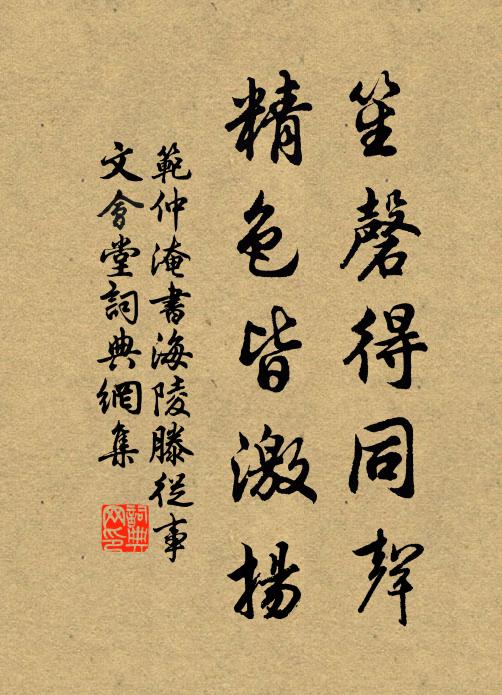 笙磬得同聲
精色皆激揚
範仲淹書海陵滕從事
文會堂詞典網集
詞典网印